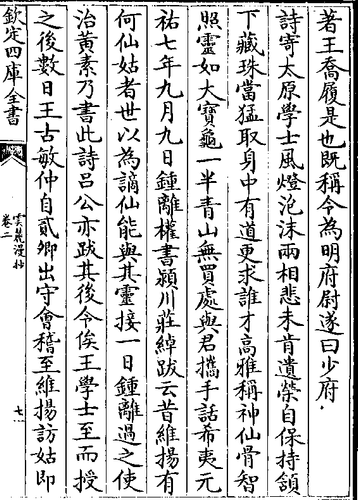 著王喬履是也既稱令為明府尉遂曰少府
詩寄太原學士風燈泡沫兩相悲未肯遺榮自保持頷
下藏珠當猛取身中有道更求誰才高雅稱神仙骨智
照靈如大寶龜一半青山無買處與君攜手話希夷元
祐七年九月九日鍾離權書潁川莊綽跋云昔維揚有
何仙姑者世以為謫仙能與其靈接一日鍾離過之使
治黃素乃書此詩呂公亦跋其後令俟王學士至而授
之後數日王古敏仲自貳卿出守會稽至維揚訪姑即
欽定四庫全書
雲麓漫抄
卷二
七